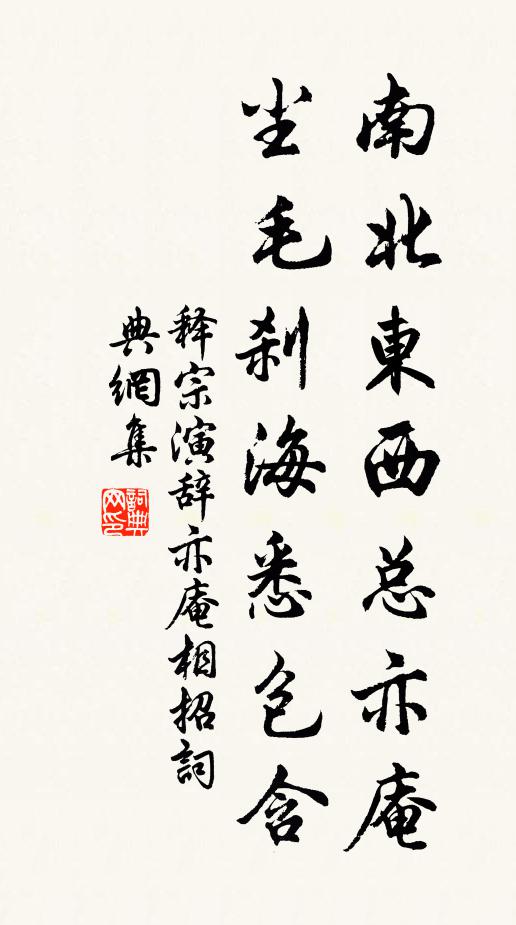 南北東西总亦庵
尘毛刹海悉包含
释宗演辞亦庵相招詞
典網集
詞典网印